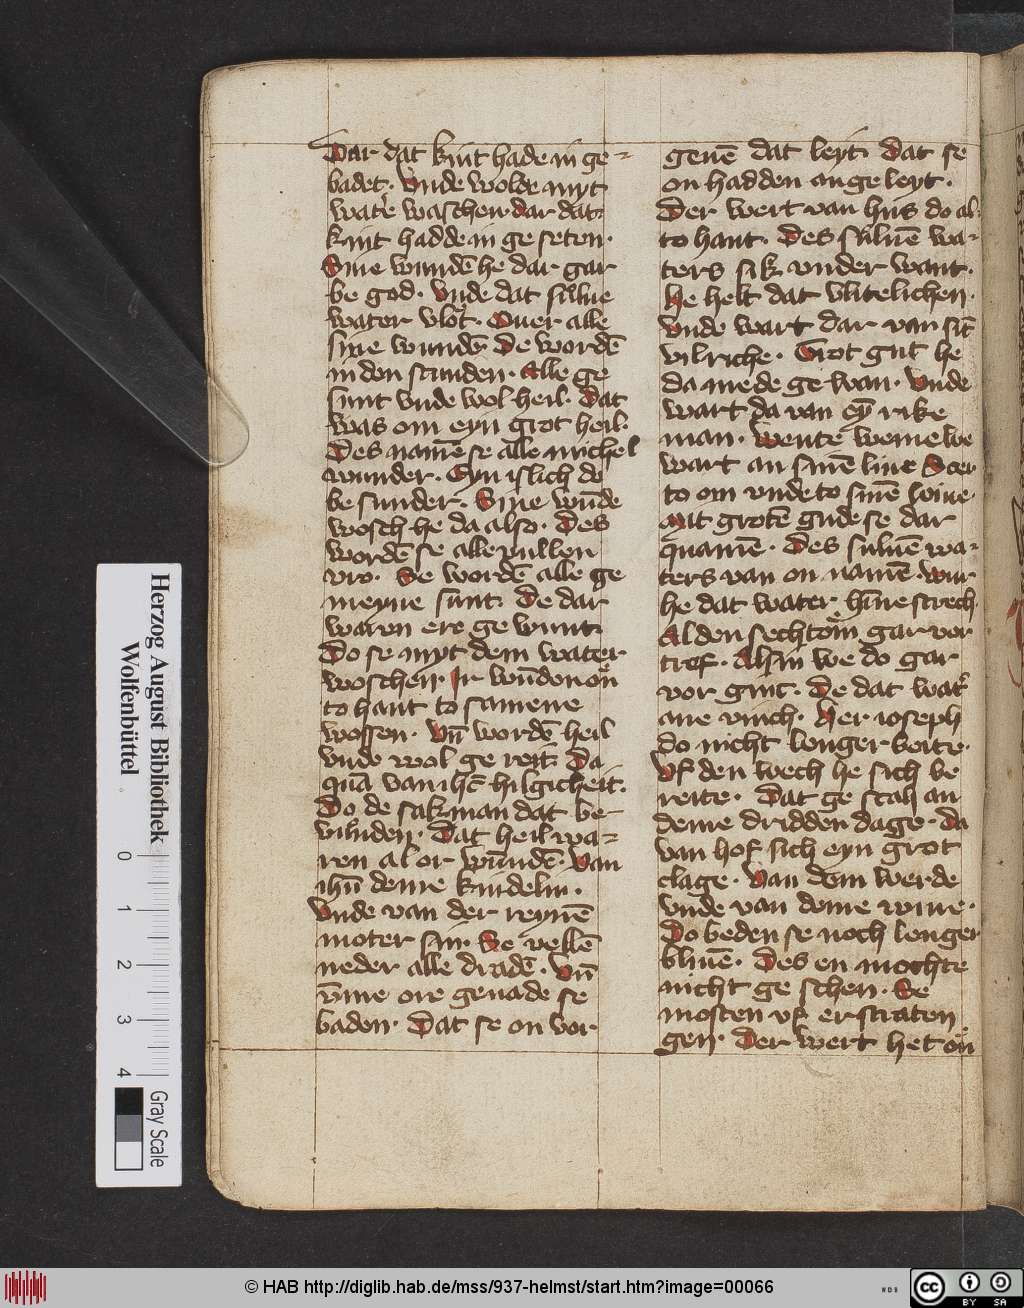 Dar dat kint hade in ge-
badet. Vnde wolde myt
wat'e waschen dar dat
kint hadde in ge seten.
Sine wundē he dar gar
be god. Vnde dat sulue
water vlot. Ouer alle
sine wundē. De wordē
in den stunden. Alle ge
sunt vnde wol heil. Dat
was om eyn grot heil.
Des namē se alle michel
wunder. Eyn islich do
be sunder. Sine wūde
wosch he da also. Des
wordē se alle vullen
vro. Se wordē alle ge
meyne sunt. De dar
waren ere ge wunt
Do se myt dem water
woschen. Ir wūden on
to hant to samene
wossen. Vn̄ wordē heil
vnde wol ge reit. Da
quā van ihc̄ hilgicheit.
Do de sakman dat be-
vunden. Dat heil wa-
ren al or wundē. Van
ihū deme kindelin.
Vnde van der reynē
moter sin. Se vellē
neder alle dradē. Vn̄
v̄me ore genade se
baden. Dat se on vor
geuē dat leyt. Dat se
on hadden an ge leyt.
Der wert van hus do al-
to hant. Des suluē wa-
ters sik vnder want.
he helt dat vlitelichen.
Vnde wart dar van sīt
vilriche. Grot gut he
da mede ge wan. Vnde
wart da van eȳ rike
man. Wente weme we
wart an sinē liue Der
to om vnde to sinē wiue.
Mit grotē gude se dar
quamē. Des suluē wa-
ters van on namē. Wur
he dat water hīne strech.
Al den sechtom gar vor
tref. Alsin we do gar
vor ginc. De dat wat'
ane vinch. Her ioseph
do nicht lenger beite.
Vf den wech he sich be
reite. Dat ge scah an
deme dridden dage. Da
van hof sich eyn grot
clage. Van dem werde
vnde van deme wiue.
Do beden se noch lenger
bliuē. Des en mochte
nicht ge schen. Se
mosten vf er straten
gen. Der wert het on
Herzog August Bibliothek
Wolfenbüttel
0 1 2 3 4
Gray Scale
© HAB http://diglib.hab.de/mss/937-helmst/start.htm?image=00066
WDB
cc BY SA